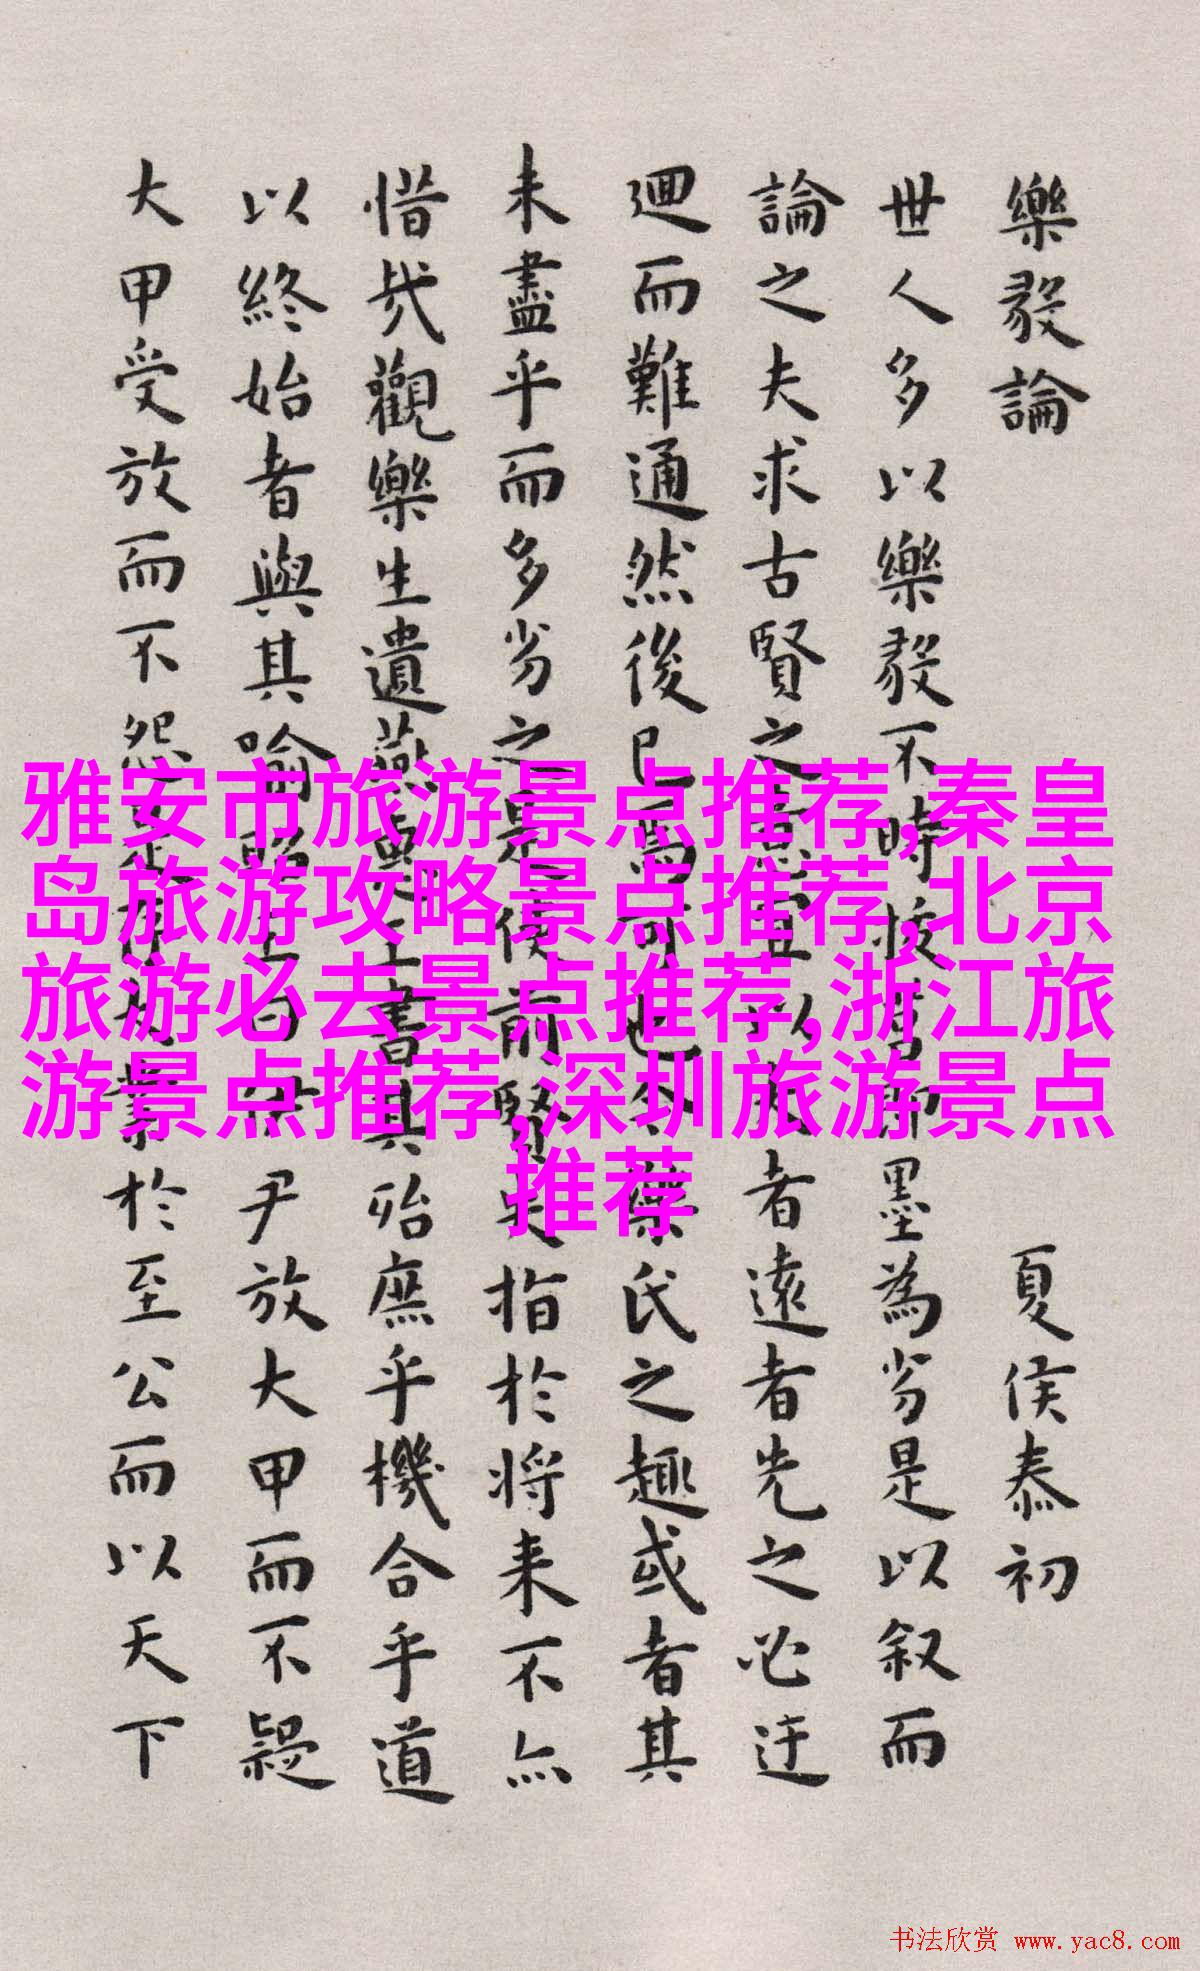 樂毅論 夏侯泰初
世人多以樂毅不時拔莒即墨為劣是以叙而
論之夫求古賢之意宜以大者遠者先之必迂
迴而難通然後已焉可也今樂氏之趣或者其
未盡乎而多劣之是使前賢失指於将来不亦
惜哉觀樂生遺燕惠王書其殆庶乎機合乎道
以終始者與其喻昭王曰伊尹放大甲而不疑
大甲受放而不怨是存大業於至公而以天下
雅安市旅游景点推荐,秦皇
岛旅游攻略景点推荐,北京
旅游必去景点推荐,浙江旅
游景点推荐,深圳旅游景点
推荐
书法欣赏 www.yac8.com